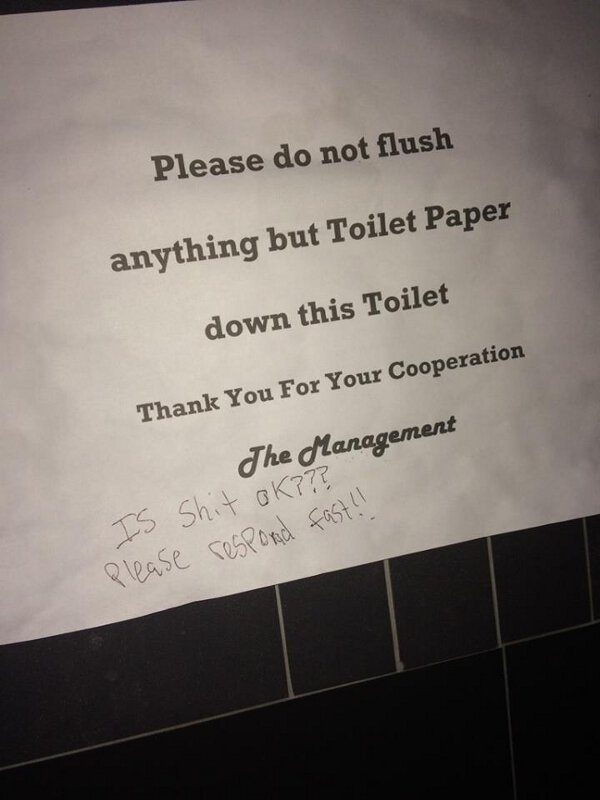 Please do not flush
anything but Toilet Paper
down this Toilet
Thank You For Your Cooperation
The Management
IS Shit OK???
Please respond fast!!